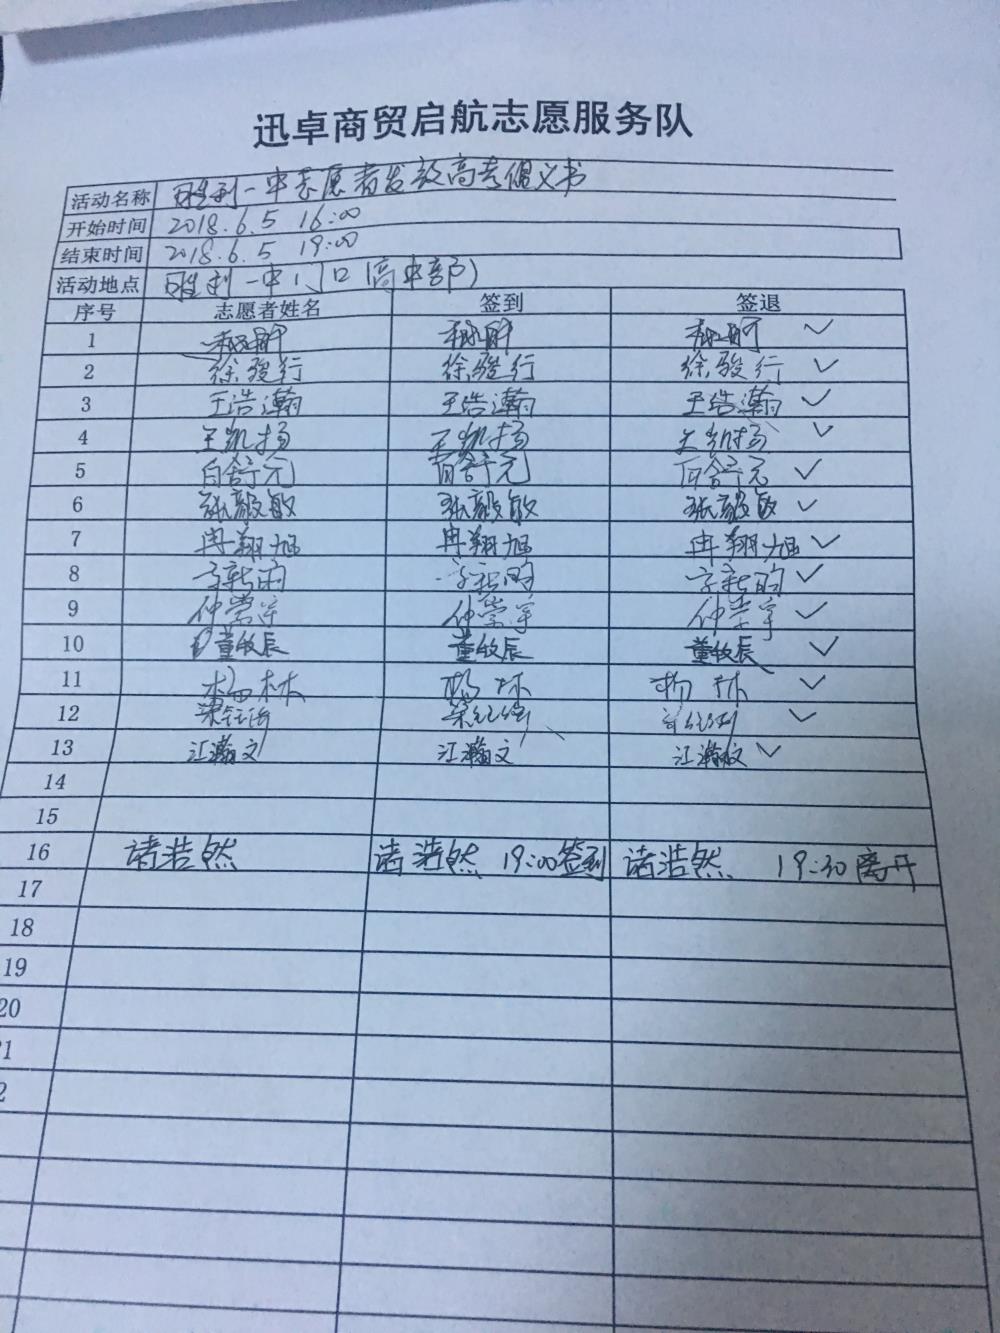 迅卓商贸启航志愿服务队
活动名称 胜利一中志愿者发放高考倡议书
开始时间 2018.6.5 16:00
结束时间 2018.6.5 19:00
活动地点 胜利一中门口(高中部)
序号 志愿者姓名 签到 签退
1
2 徐骏行 徐骏行 徐骏行 ✓
3 王浩瀚 王浩瀚 王浩瀚 ✓
4 王凯扬 王凯扬 王凯扬 ✓
5 白舒元 白舒元 白舒元 ✓
6 张毅敏 张毅敏 张毅敏 ✓
7 冉翔旭 冉翔旭 冉翔旭 ✓
8
9 仲崇宇 仲崇宇 仲崇宇 ✓
10 董牧辰 董牧辰 董牧辰 ✓
11 杨林 杨林 杨林 ✓
12
13 江瀚文 江瀚文 江瀚文 ✓
14
15
16 诸浩然 诸浩然 19:00签到 诸浩然 19:30离开
17
18
19
20